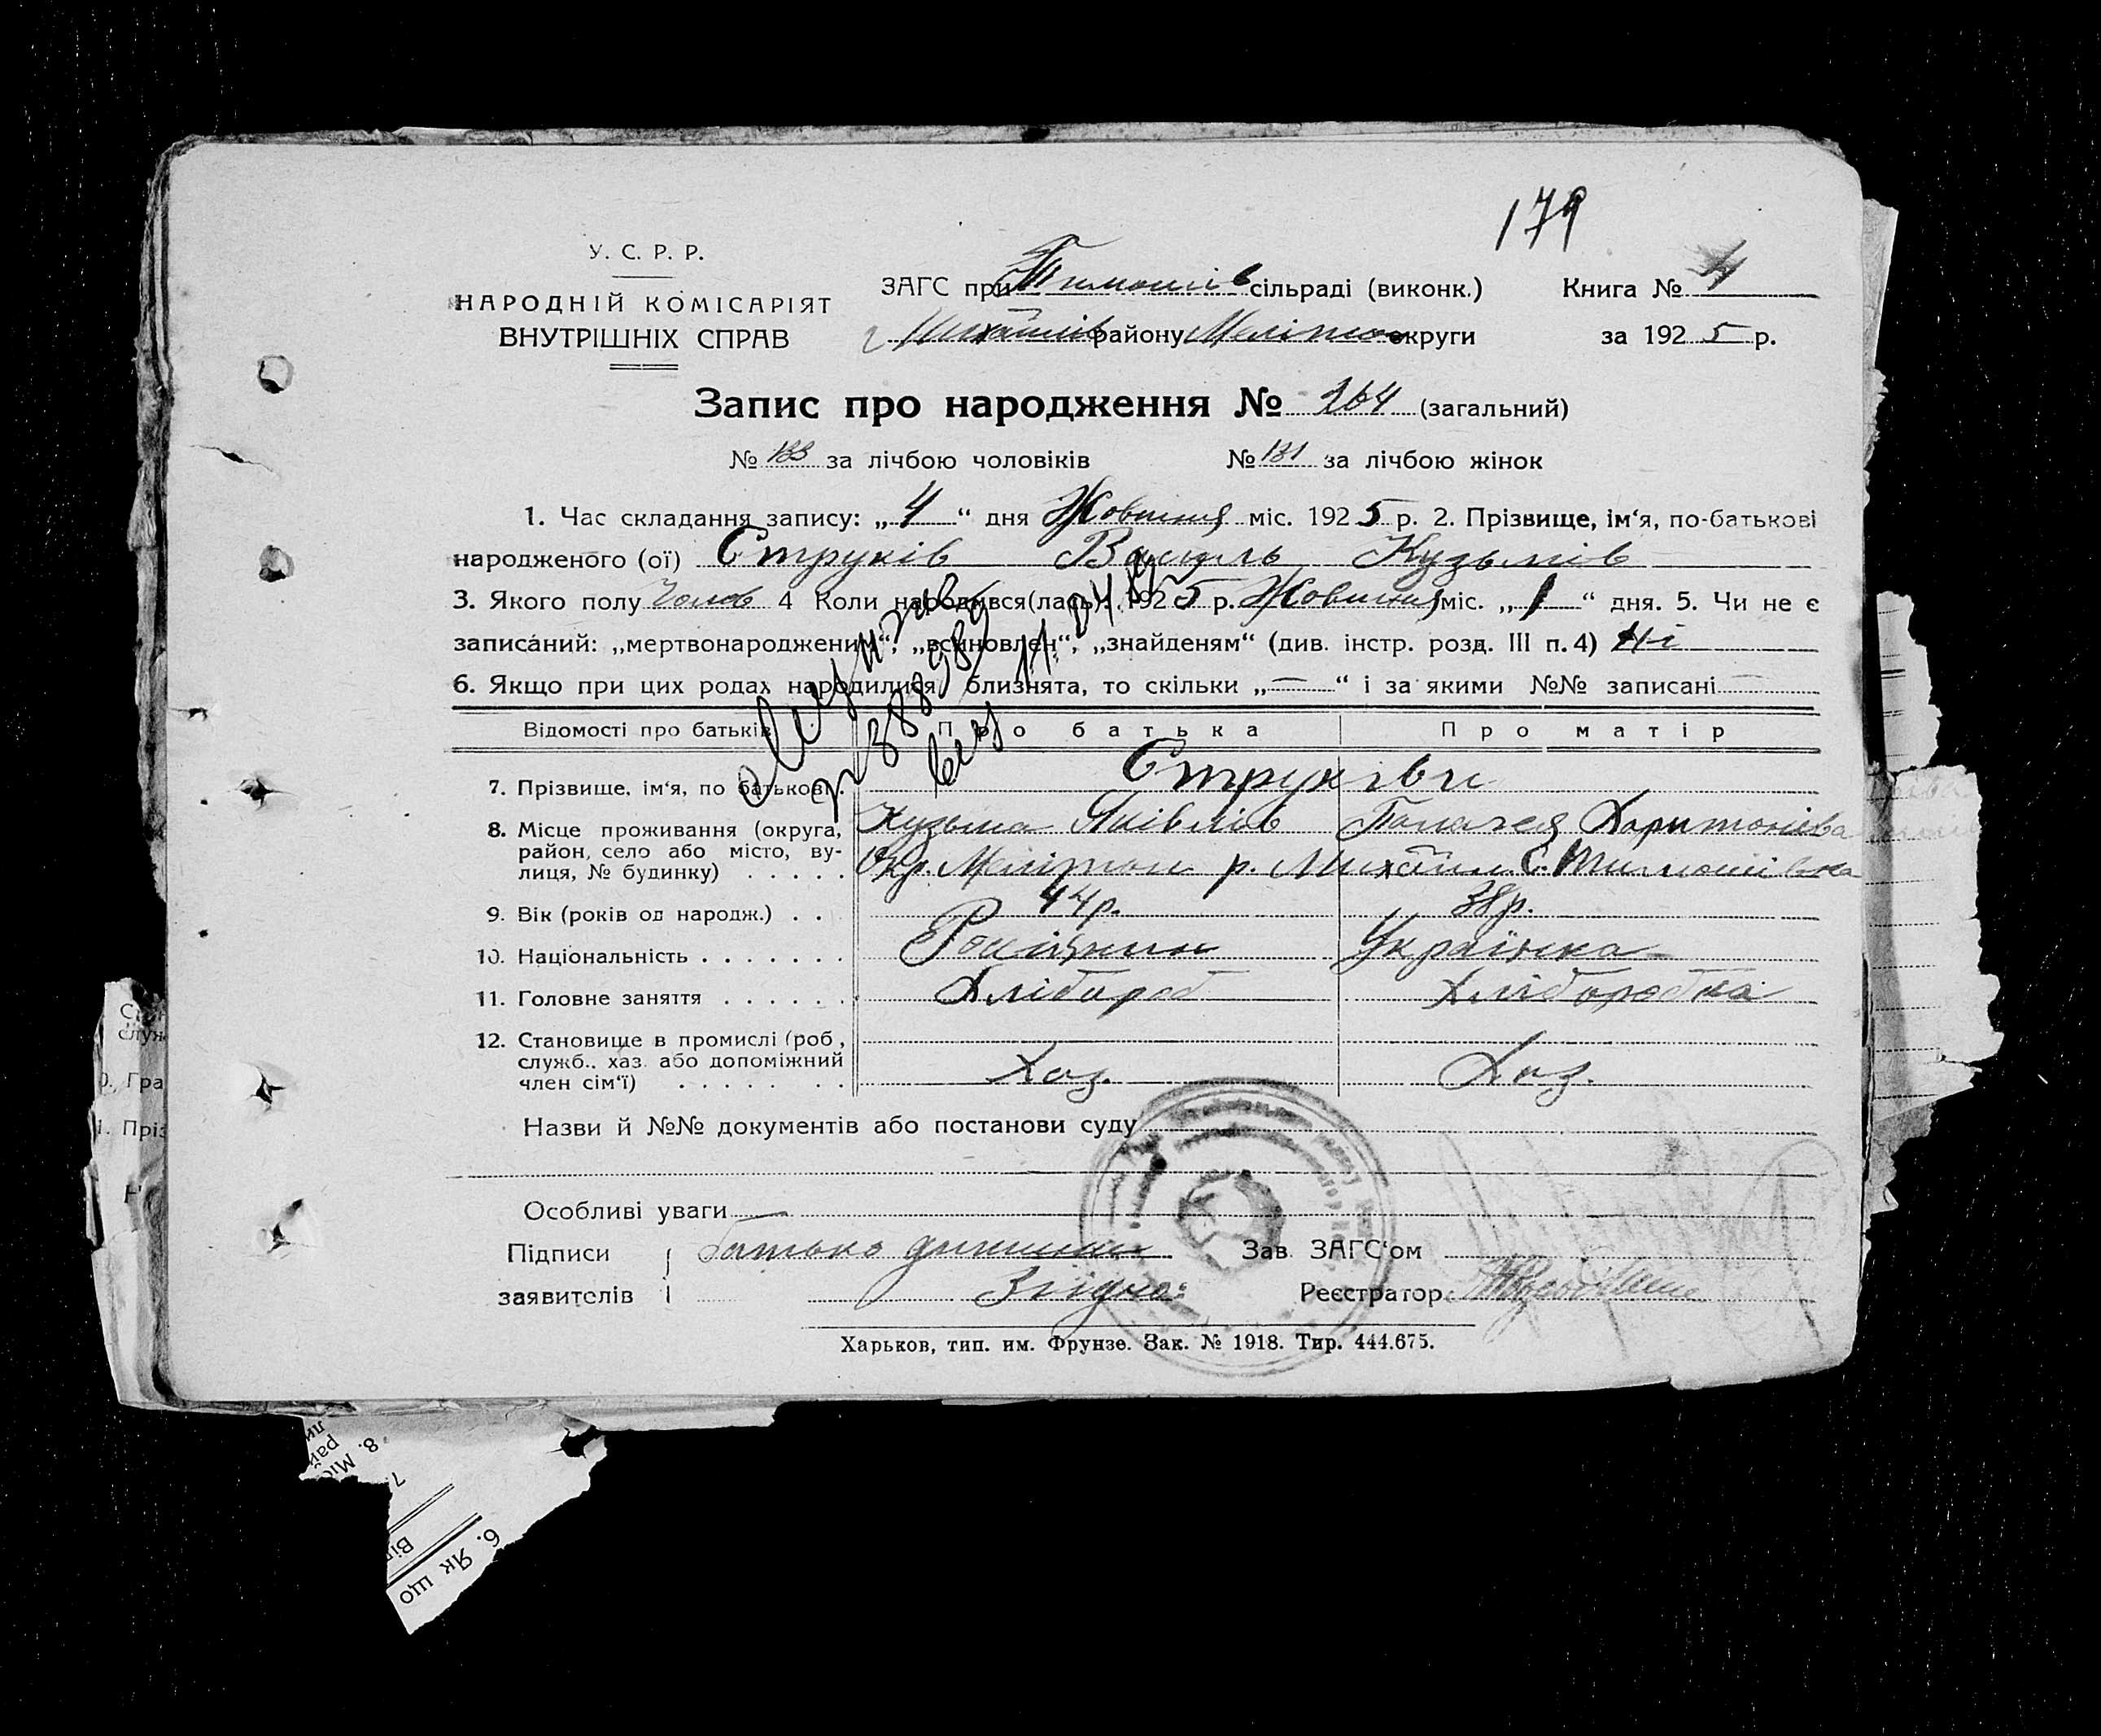 179
У. С. Р. Р.
НАРОДНІЙ КОМІСАРІЯТ
ВНУТРІШНІХ СПРАВ
ЗАГС при Тимошів сільраді (виконк.) Книга № 4
Михайлів району Меліто округи за 1925 р.
Запис про народження № 264 (загальний)
№ 133 за лічбою чоловіків № 131 за лічбою жінок
1. Час складання запису: „4“ дня Жовтня міс. 1925 р. 2. Прізвище, ім‘я, по-батькові
народженого (ої) Струків Василь Кузьмів
3. Якого полу Чолов 4 Коли народився(лась): 1925 р. Жовтня міс. „1“ дня. 5. Чи не є
записаний: „мертвонародженим“, „всиновлен“, „знайденям“ (див. інстр. розд. III п. 4) Ні
6. Якщо при цих родах народилися близнята, то скільки „—“ і за якими №№ записані —
Відомості про батьків Про батька Про матір
7. Прізвище, ім‘я, по батькові . Струківи
Кузьма Яківлів Палагея Харитонівна
8. Місце проживання (округа, район, село або місто, ву-
лиця, № будинку) . . . . . Окр. Мелітоп р. Михайл С. Тимошівка
9. Вік (років од народж.) . . 44р. 38р.
10. Національність . . . . . . . Українка
11. Головне заняття . . . . . . Хлібороб Хлібкоробка
12. Становище в промислі (роб,
служб.. хаз. або допоміжний
член сім‘ї) . . . . . . . Хаз. Хаз.
Назви й №№ документів або постанови суду
Особливі уваги —
Підписи Батько дитини Зав. ЗАГС‘ом
заявителів Згідно: Реєстратор
Харьков, тип. им. Фрунзе. Зак. № 1918. Тир. 444.675.